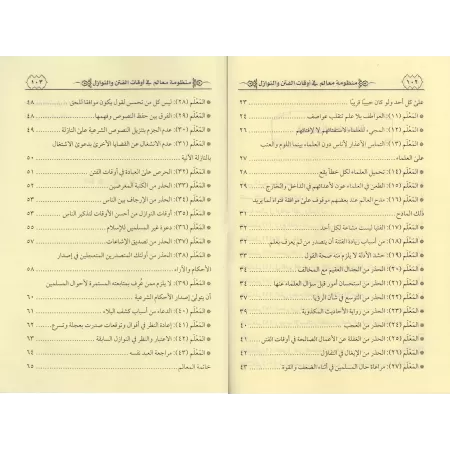 ١٠٢ منظومة معالم في أوقات الفتن والنوازل
على كل أحد ولو كان حبيبًا قريبًا ٢٣
المَعْلَم (١١): العواطف بلا علم تنقلب عواصف ٢٤
المَعْلَم (١٢): المجيء للعلماء لاستفتائهم لا لإفتائهم ٢٦
المَعْلَم (١٣): التماس الأعذار لأناس دون العلماء بينما اللوم والعتب
على العلماء ٢٧
المَعْلَم (١٤): تحميل العلماء لكل خطأ يقع ٢٨
المَعْلَم (١٥): الطعن في العلماء عون لأعدائهم في الداخل والخارج ٢٩
المَعْلَم (١٦): مدح العالم عند بعضهم موقوف على موافقة فتواه لما يريد
ذلك المادح ٣١
المَعْلَم (١٧): الفتيا ليست مشاعة لكل أحد ٣٢
المَعْلَم (١٨): من أسباب زيادة الفتنة أن يتصدر من لم يعرف بعلم ٣٢
المَعْلَم (١٩): حشد الأدلة لا يلزم منه صحة القول ٣٣
المَعْلَم (٢٠): الحذر من الجدال العقيم مع المخالف ٣٤
المَعْلَم (٢١): الحذر من استحسان أمور قبل سؤال العلماء عنها ٣٤
المَعْلَم (٢٢): الحذر من التوسع في شأن الرؤيا ٣٧
المَعْلَم (٢٣): الحذر من رواية الأحاديث المكذوبة ٣٩
المَعْلَم (٢٤): الحذر من التعجب ٤٠
المَعْلَم (٢٥): الحذر من الغفلة عن الأعمال الصالحة في أوقات الفتن ٤١
المَعْلَم (٢٦): الحذر من الإيغال في التفاؤل ٤٢
المَعْلَم (٢٧): مراعاة حال المسلمين في أثناء الضعف والقوة ٤٣
منظومة معالم في أوقات الفتن والنوازل ١٠٣
المَعْلَم (٢٨): ليس كل من تحمس لقول يكون موافقًا للحق ٤٨
المَعْلَم (٢٩): الفرق بين حفظ النصوص وفهمها ٤٨
المَعْلَم (٣٠): عدم الجزم بتنزيل النصوص الشرعية على النازلة ٤٩
المَعْلَم (٣١): عدم الانشغال عن القضايا الأخرى بدعوى الاشتغال
بالنازلة الآنية ٥٠
المَعْلَم (٣٢): الحرص على العبادة في أوقات الفتن ٥١
المَعْلَم (٣٣): الحذر من الكتبة المغرضين ٥٢
المَعْلَم (٣٤): الحذر من الإرجاف بين الناس ٥٣
المَعْلَم (٣٥): أوقات النوازل من أحسن الأوقات لتذكير الناس ٥٣
المَعْلَم (٣٦): دعوة غير المسلمين للإسلام ٥٥
المَعْلَم (٣٧): الحذر من تصديق الإشاعات ٥٧
المَعْلَم (٣٨): الحذر من أولئك المتصدرين المتعجلين في إصدار
الأحكام والآراء ٥٨
المَعْلَم (٣٩): لا يلزم ممن عُرف بمتابعته المستمرة لأحوال المسلمين
أن يتولى إصدار الأحكام الشرعية ٦٠
المَعْلَم (٤٠): الدعاء من أسباب كشف البلاء ٦١
المَعْلَم (٤١): إعادة النظر في أقوال وتوقعات صدرت بعجلة وتسرع ٦٢
المَعْلَم (٤٢): الاعتبار والنظر في النوازل السابقة ٦٣
المَعْلَم (٤٣): مراجعة العبد نفسه ٦٤
خاتمة المعالم ٦٥